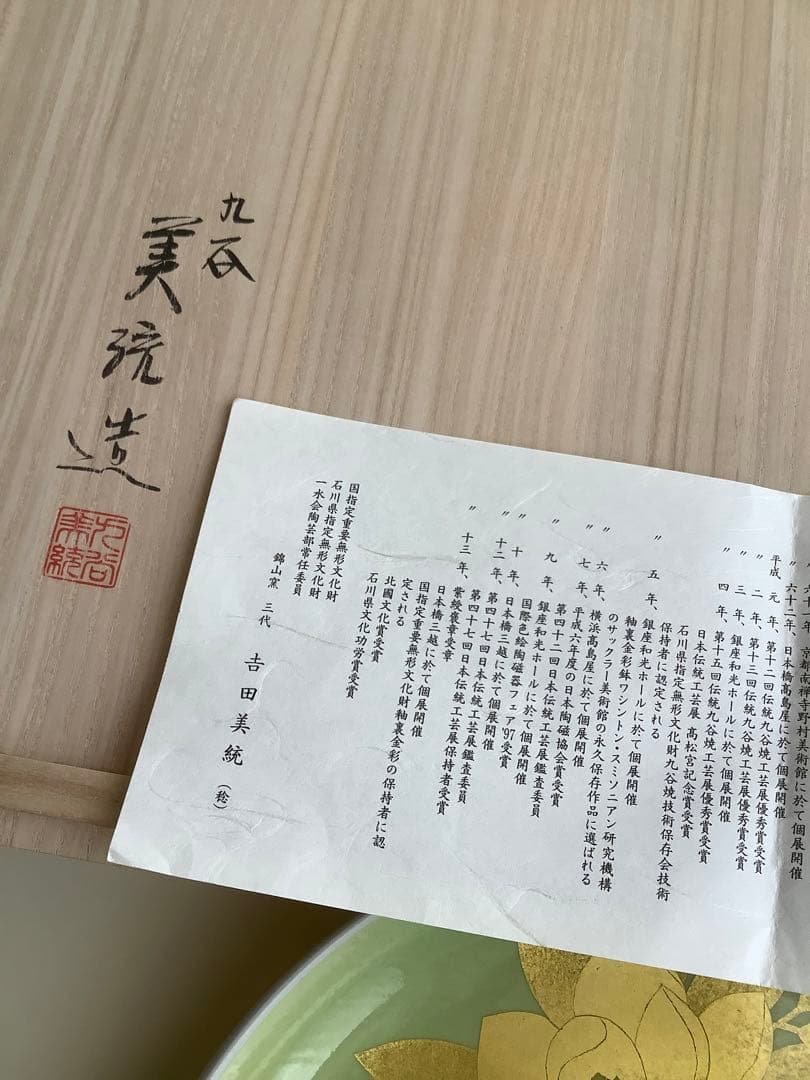 九谷
美統造
九谷
美統
六十年、京都南禅寺野村美術館に於て個展開催
〃 六十二年、日本橋高島屋に於て個展開催
平成 元 年、第十二回伝統九谷焼工芸展優秀賞受賞
〃 二 年、第十三回伝統九谷焼工芸展優秀賞受賞
〃 三 年、銀座和光ホールに於て個展開催
〃 四 年、第十五回伝統九谷焼工芸展優秀賞受賞
日本伝統工芸展 高松宮記念賞受賞
石川県指定無形文化財九谷焼技術保存会技術
保持者に認定される
〃 五 年、銀座和光ホールに於て個展開催
釉裏金彩鉢ワシントン・スミソニアン研究機構
のサックラー美術館の永久保存作品に選ばれる
〃 六 年、横浜高島屋に於て個展開催
〃 七 年、平成六年度の日本陶磁協会賞受賞
第四十二回日本伝統工芸展鑑査委員
〃 九 年、銀座和光ホールに於て個展開催
国際色絵陶磁器フェア'97受賞
〃 十 年、日本橋三越に於て個展開催
〃 十二 年、第四十七回日本伝統工芸展鑑査委員
第四十七回日本伝統工芸展保持者受賞
〃 十三 年、紫綬褒章受章
日本橋三越に於て個展開催
国指定重要無形文化財釉裏金彩の保持者に認
定される
北國文化賞受賞
石川県文化功労賞受賞
国指定重要無形文化財
石川県指定無形文化財
一水会陶芸部常任委員
錦山窯 三代 吉田美統 (稔)